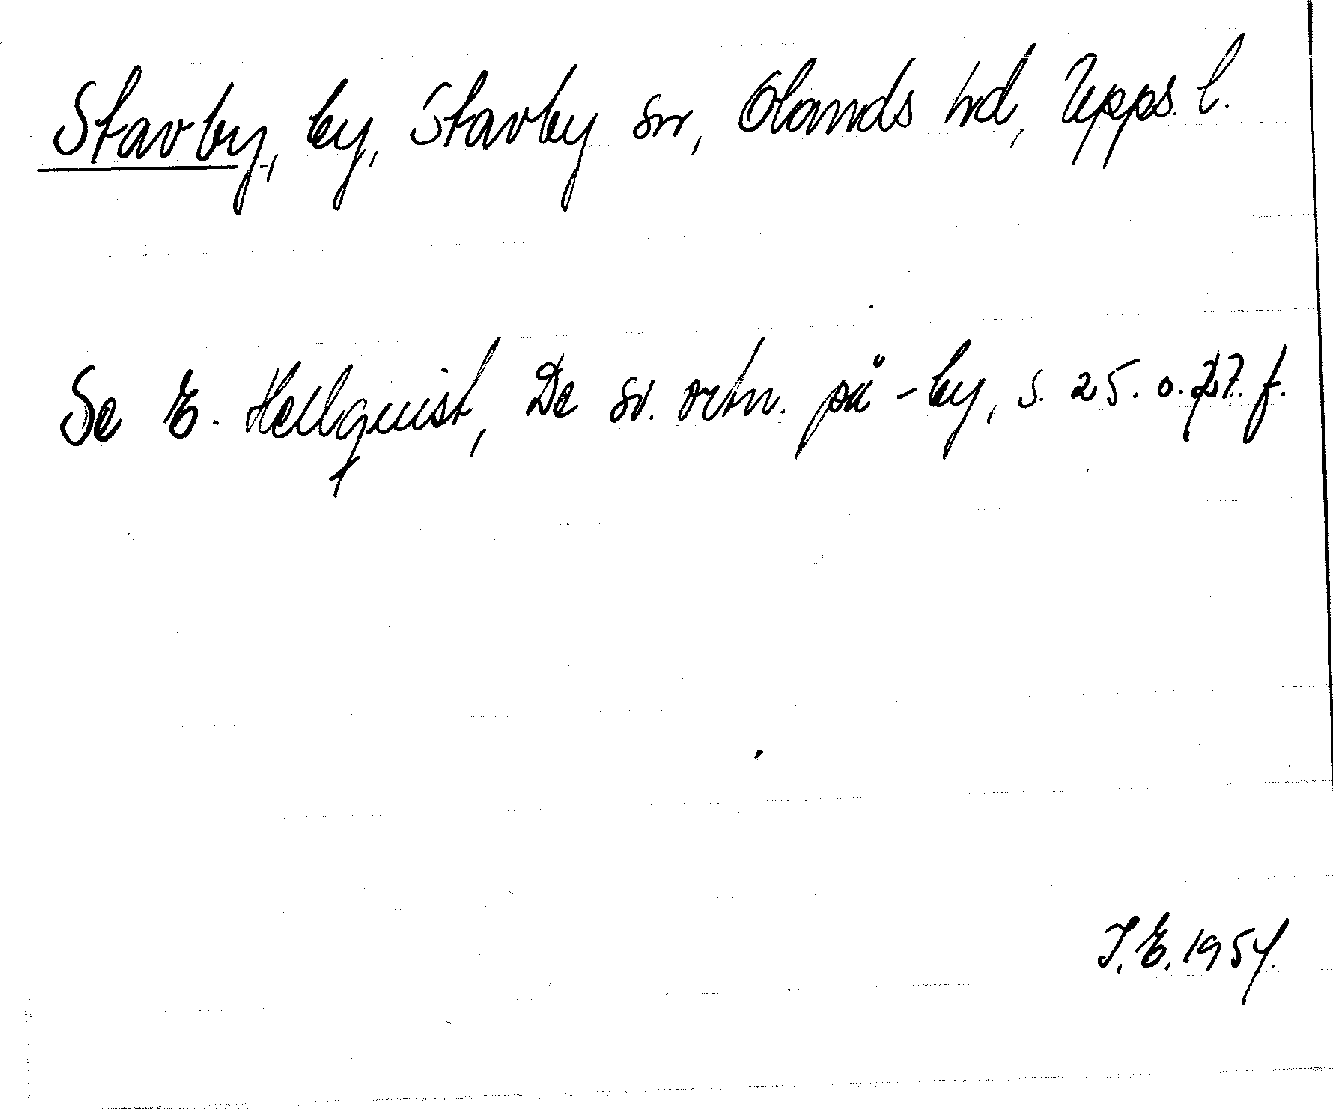 Stavby, by, Stavby sn, Olands hd, Upps. l.
Se E. Hellquist, De sv. ortn. på -by, s. 25. o. 27. f.
I. E. 1954.